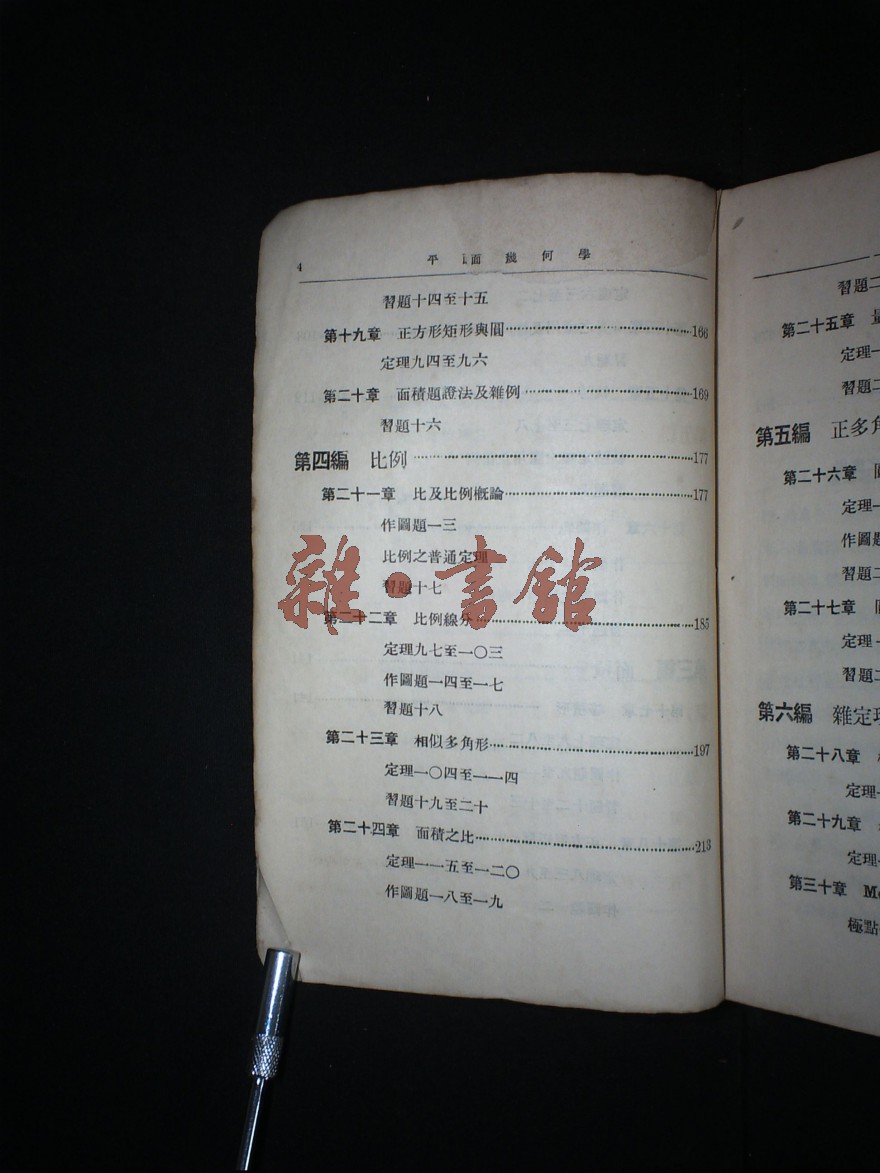 4 平面幾何學
習題十四至十五
第十九章 正方形矩形與圓 166
定理九四至九六
第二十章 面積題證法及雜例 169
習題十六
第四編 比例 177
第二十一章 比及比例槪論 177
作圖題一三
比例之普通定理
習題十七
雜·書舘
第二十二章 比例線分 185
定理九七至一〇三
作圖題一四至一七
習題十八
第二十三章 相似多角形 197
定理一〇四至一一四
習題十九至二十
第二十四章 面積之比 213
定理一一五至一二〇
作圖題一八至一九
習題二
第二十五章
定理一
習題二
第五編 正多角
第二十六章
定理一
作圖題
習題二
第二十七章
定理一
習題二
第六編 雜定理
第二十八章
定理
第二十九章
定理
第三十章
極點